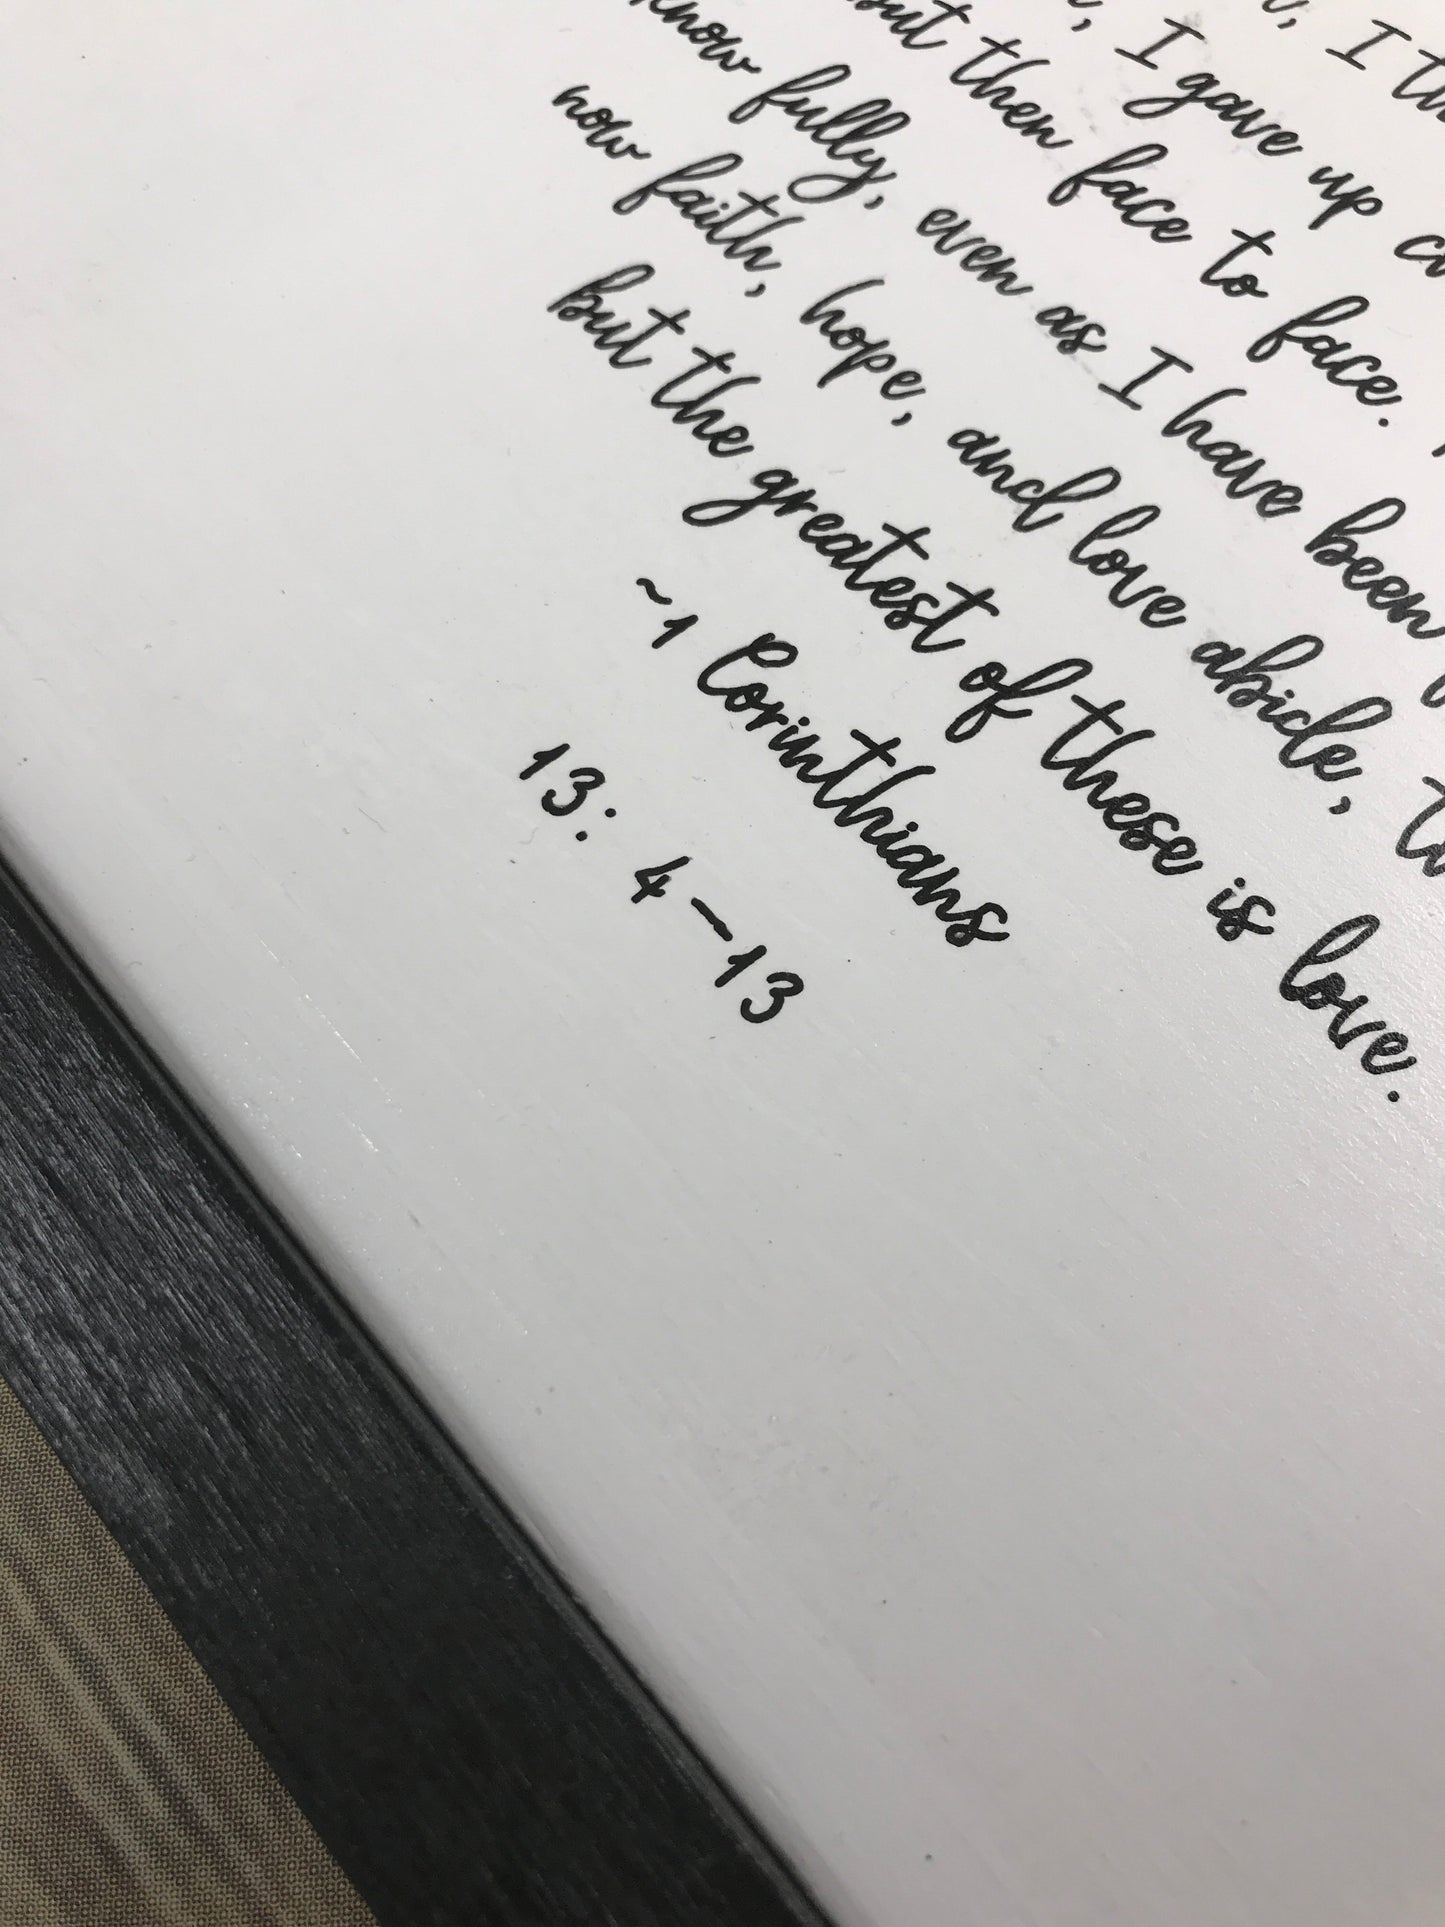 I th
, I gave up
but then face to face.
know fully, even as I have been
now faith, hope, and love abide,
But the greatest of these is love.
~1 Corinthians
13: 4-13